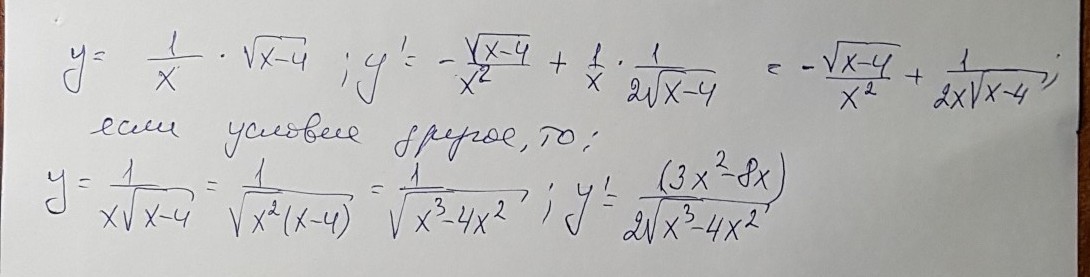 y = 1/x · √(x-4) ; y' = -√(x-4)/x² + 1/x · 1/(2√(x-4)) = -√(x-4)/x² + 1/(2x√(x-4));
если условие другое, то:
y = 1/(x√(x-4)) = 1/√(x²(x-4)) = 1/√(x³-4x²) ; y' = (3x²-8x)/(2√(x³-4x²))